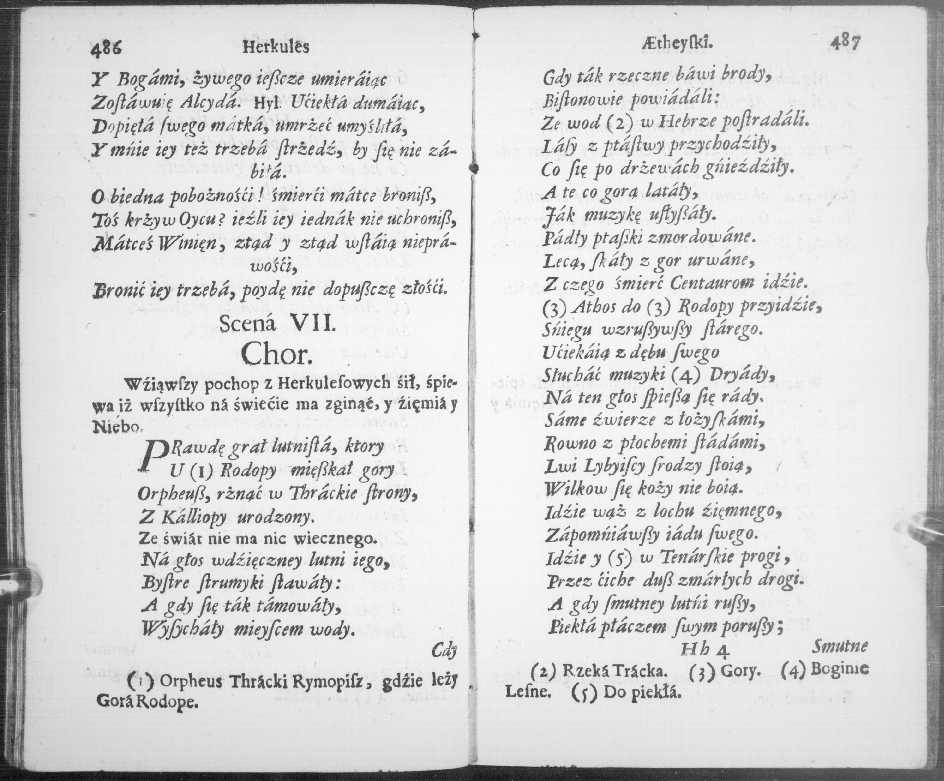 486 Herkules
Y Bogámi, żywego ießcze umieráiąc
Zoſtáwuię Alcydá. Hyl. Ućiekłá dumáiąc,
Dopięłá ſwego mátká, umrżeć umyśliłá,
Y mńie iey też trzebá ſtrżedź, by ſię nie zá-
biłá.
O biedna pobożnośći! śmierći mátce broniß,
Toś krżyw Oycu? ieźli iey iednák nie uchroniß,
Mátceś Winięn, ztąd y ztąd wſtáią nieprá-
wośći,
Bronić iey trzebá, poydę nie dopußczę złośći.
Scená VII.
Chor.
Wźiąwſzy pochop z Herkuleſowych śił, śpie-
wa iż wſzyſtko ná świećie ma zginąć, y źięmiá y
Niebo.
PRawdę grał lutniſtá, ktory
U (1) Rodopy mięßkał gory
Orpheuß, rżnąć w Thráckie ſtrony,
Z Kálliopy urodzony.
Ze świát nie ma nic wiecznego.
Ná głos wdźięczney lutni iego,
Byſtre ſtrumyki ſtawáły:
A gdy ſię ták támowáły,
Wyſycháły mieyſcem wody.
Cdy
(1) Orpheus Thrácki Rymopiſz, gdźie leży
Gorá Rodope.
Ætheyſki. 487
Gdy ták rzeczne báwi brody,
Biſtonowie powiádáli:
Ze wod (2) w Hebrze poſtradáli.
Láſy z ptáſtwy przychodźiły,
Co ſię po drżewách gńieźdźiły.
A te co gorą latáły,
Ják muzykę uſłyßáły.
Pádły ptaßki zmordowáne.
Lecą, ſkáły z gor urwáne,
Z czego śmierć Centaurom idźie.
(3) Athos do (3) Rodopy przyidźie,
Śńiegu wzrußywßy ſtárego.
Ućiekáią z dębu ſwego
Słucháć muzyki (4) Dryády,
Ná ten głos ſpießą ſię rády.
Sáme źwierze z łożyſkámi,
Rowno z płochemi ſtádámi,
Lwi Lybyiſcy ſrodzy ſtoią,
Wilkow ſię koży nie boią.
Idźie wąż z lochu źięmnego,
Zápomńiáwßy iádu ſwego.
Idźie y (5) w Tenárſkie progi,
Przez ćiche duß zmárłych drogi.
A gdy ſmutney lutńi rußy,
Piekłá płáczem ſwym porußy;
Hh 4 Smutne
(2) Rzeká Trácka. (3) Gory. (4) Boginie
Leſne. (5) Do piekłá.